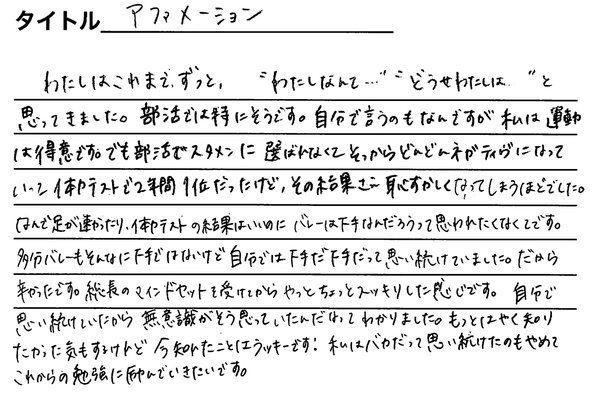 タイトル アファメーション
わたしはこれまで、ずっと、"わたしなんて…""どうせわたしは…"と
思ってきました。部活では特にそうです。自分で言うのもなんですが私は運動
は得意です。でも部活でスタメンに選ばれなくてそっからどんどんネガティヴになって
いって体力テストで2年間1位だったけど、その結果さえ恥ずかしくなってしまうほどでした。
なんで足が速かったり、体力テストの結果はいいのにバレーは下手なんだろうって思われたくなくてです。
多分バレーもそんなに下手ではないけど自分では下手だ下手だって思い続けていました。だから
辛かったです。総長のマインドセットを受けてからやっとちょっとスッキリした感じです。自分で
思い続けていたから無意識がそう思っていたんだなってわかりました。もっとはやく知り
たかった気もするけれど今知れたことはラッキーです!私はバカだって思い続けたのもやめて
これからの勉強に励んでいきたいです。